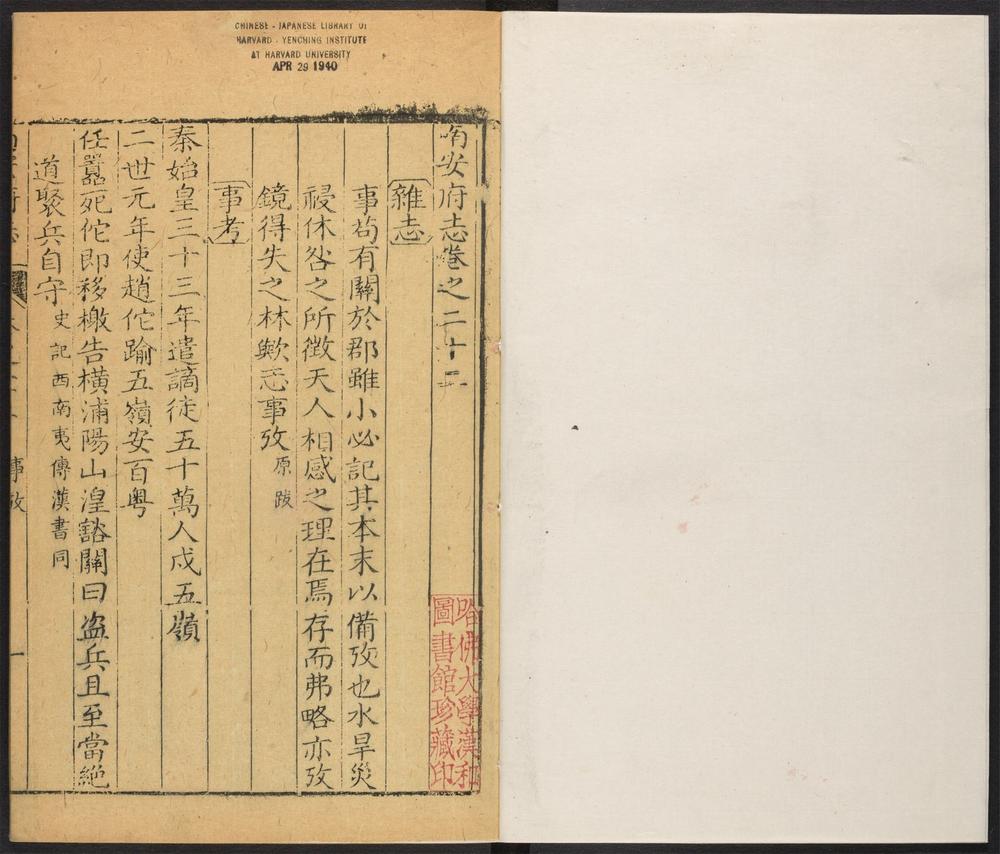 CHINESE - JAPANESE LIBRARY OF
HARVARD - YENCHING INSTITUTE
AT HARVARD UNIVERSITY
APR 29 1940
南安府志卷之二十二
雜志
事苟有關於郡雖小必記其本末以備攷也水旱災
祲休咎之所徵天人相感之理在焉存而弗略亦攷
鏡得失之林歟志事攷原跋
事考
秦始皇三十三年遣謫徒五十萬人戍五嶺
二世元年使趙佗踰五嶺安百粤
任囂死佗即移檄告橫浦陽山湟谿關曰盗兵且至當絶
道聚兵自守史記西南夷傳漢書同
事攷
一
哈佛大學漢和
圖書館珍藏印